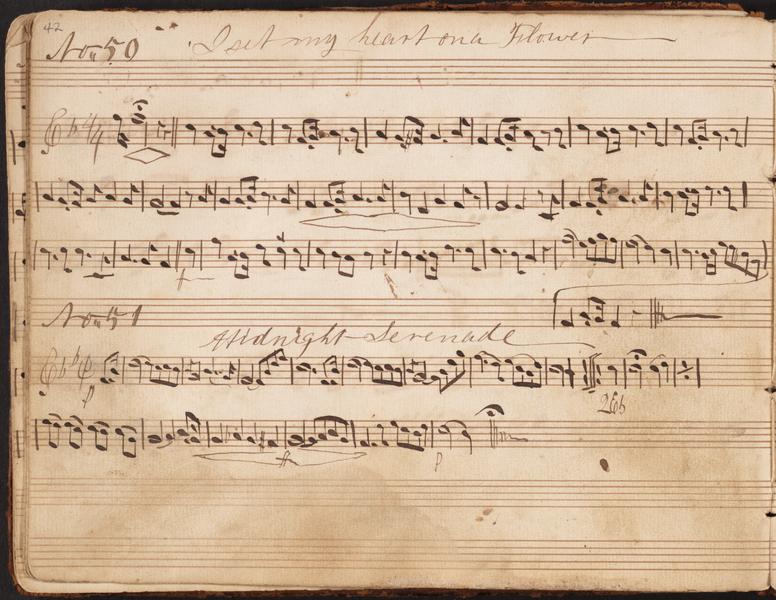 42
No. 50 I set my heart on a Flower
Eb 4/4
No. 51
Midnight Serenade
Eb
p
2Eb
ff
p